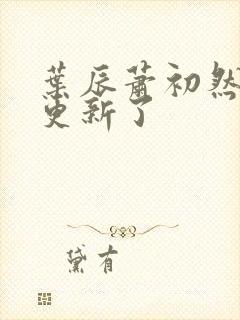 葉辰蕭初然
更新了
黛有